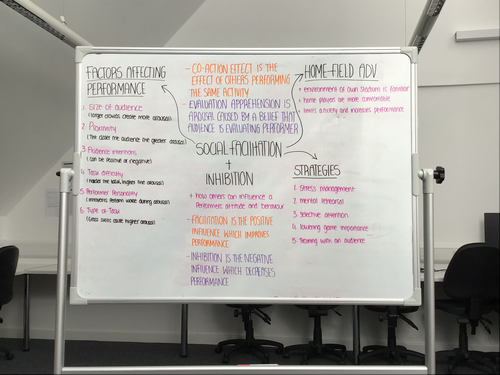 FACTORS AFFECTING
PERFORMANCE
1. Size of audience
(larger crowds create more arousal)
2. Proximity
(the closer the audience the greater arousal)
3. Audience intentions
(can be positive or negative)
4. Task difficulty
(harder the task, higher the arousal)
5. Performer Personality
(introverts perform worse during arousal)
6. Type of Task
(Gross skills cause higher arousal)
- CO-ACTION EFFECT IS THE
EFFECT OF OTHERS PERFORMING
THE SAME ACTIVITY
- EVALUATION APPREHENSION IS
AROUSAL CAUSED BY A BELIEF THAT
AUDIENCE IS EVALUATING PERFORMER
SOCIAL FACILITATION
+
INHIBITION
+ how others can influence a
Performers attitude and behaviour
- FACILITATION IS THE POSITIVE
INFLUENCE WHICH IMPROVES
PERFORMANCE
- INHIBITION IS THE NEGATIVE
INFLUENCE WHICH DECREASES
PERFORMANCE
HOME-FIELD ADV
+ environment of own stadium is familiar
+ home players are more comfortable
+ limits anxiety and increases performance
STRATEGIES
1. Stress management
2. mental rehearsal
3. selective attention
4. lowering game importance
5. Training with an audience